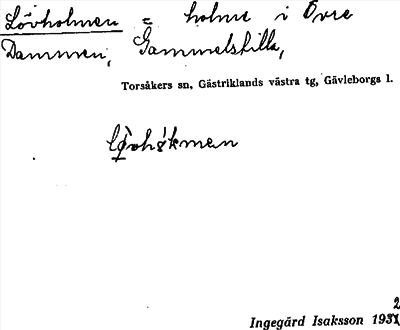 Lövholmen = holme i Övre
Dammen, Gammelstilla,
Torsåkers sn, Gästriklands västra tg, Gävleborgs l.
2
Ingegärd Isaksson 193